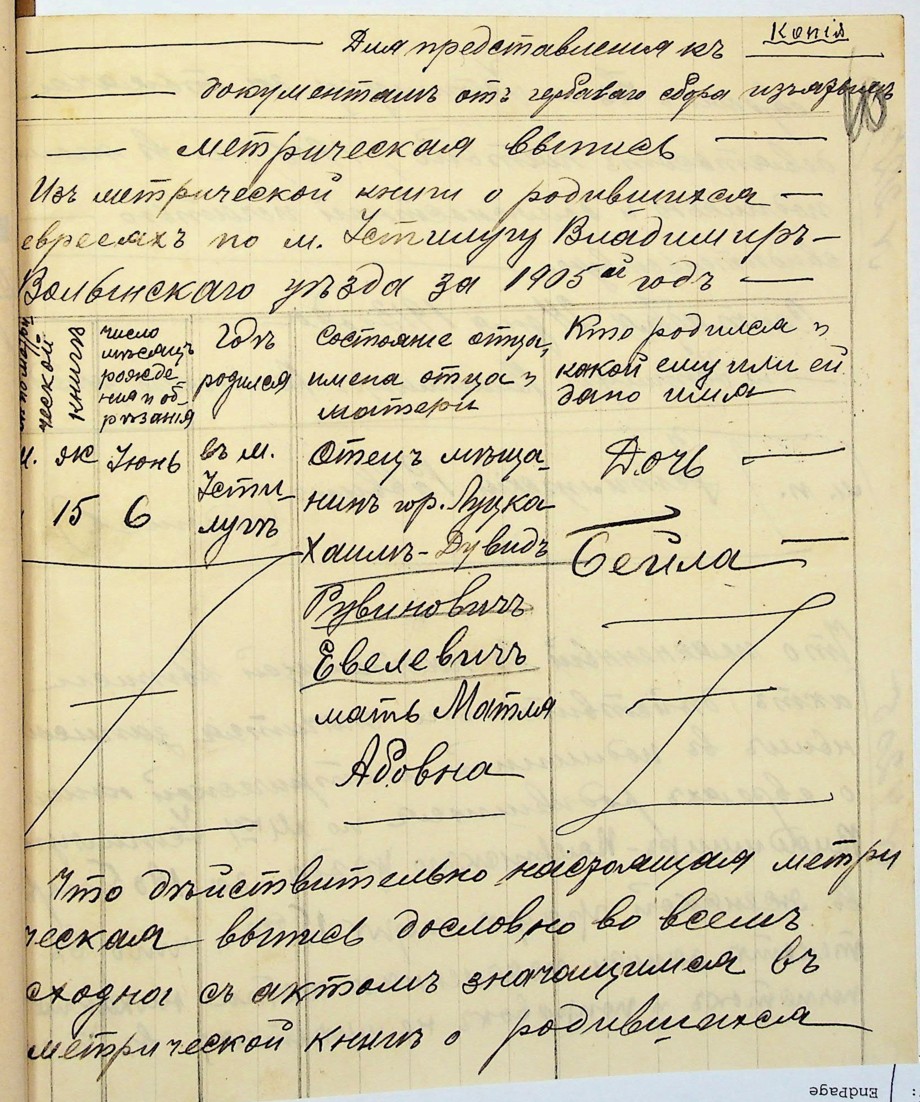 Копія
Для представленія къ
документамъ отъ гербоваго сбора изъятыхъ
Метрическая выпись
Изъ метрической книги о родившихся
евреяхъ по м. Устилугу Владимиръ-
Волынскаго уѣзда за 1905й годъ
ческой
книгѣ
число
мѣсяцъ
рожде
нія и об-
рѣзанія
Годъ
родился
Состояніе отца,
имена отца и
матери
Кто родился и
какой ему или ей
дано имя
м. як
15
Іюнь
6
въ м.
Усти-
лугѣ
Отецъ мѣща-
нинъ гор. Луцка
Хаимъ-Дувидъ
Рувиновичъ
Евелевичъ
мать Матля
Абовна
Дочь
Бейла
Что дѣйствительно настоящая метри
ческая выпись дословно во всемъ
сходна съ актомъ значащимся въ
метрической книгѣ о родившихся
EndPage